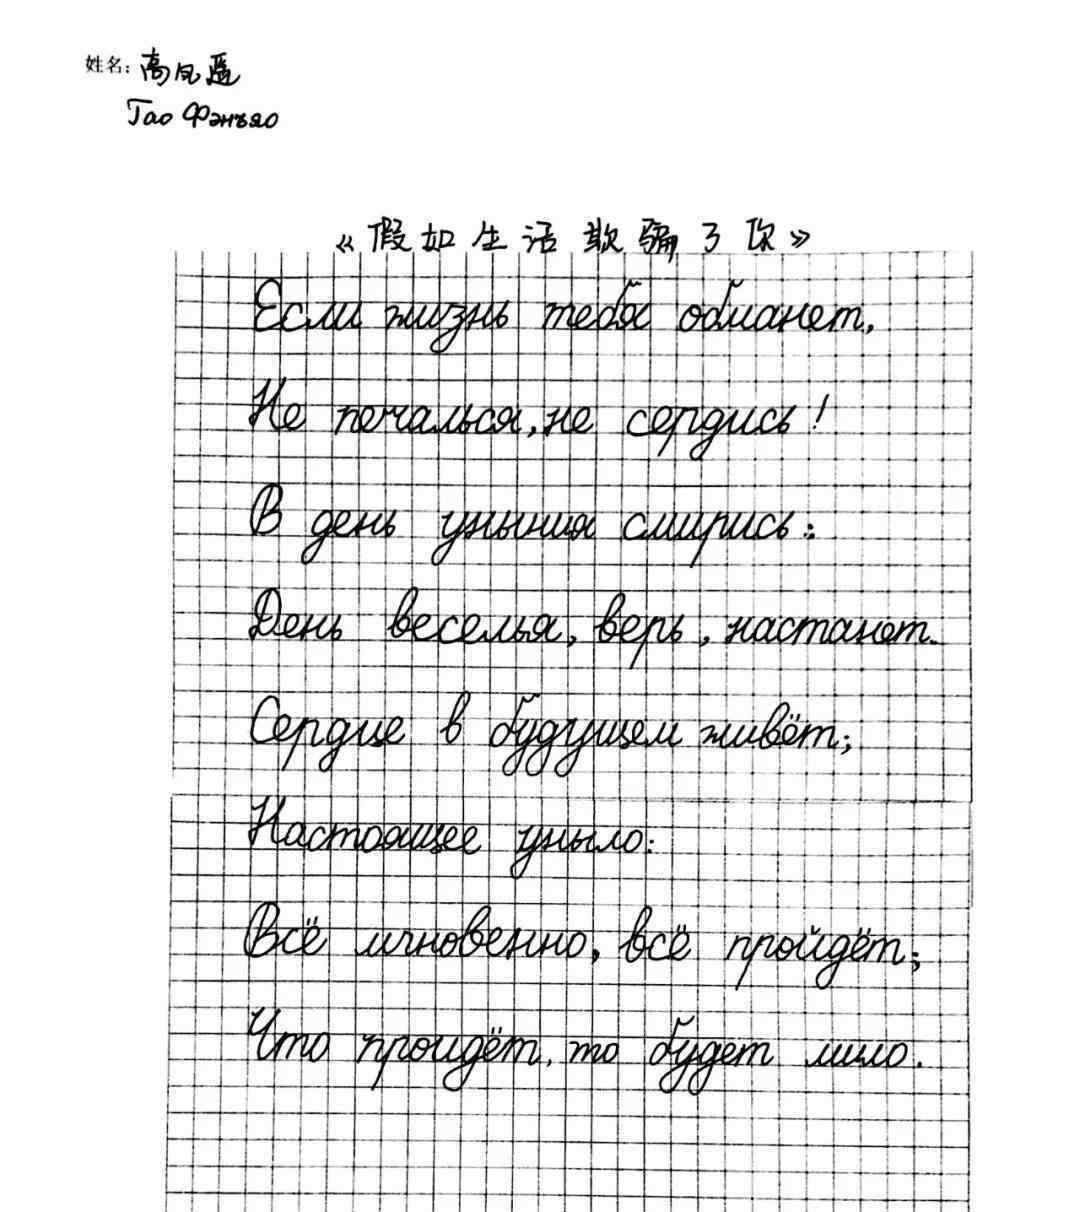 姓名: 高凤遥
Гао Фэнъяо
《假如生活欺骗了你》
Если жизнь тебя обманет,
Не печалься, не сердись!
В день уныния смирись:
День веселья, верь, настанет.
Сердце в будущем живёт;
Настоящее уныло:
Всё мгновенно, всё пройдёт;
Что пройдёт, то будет мило.